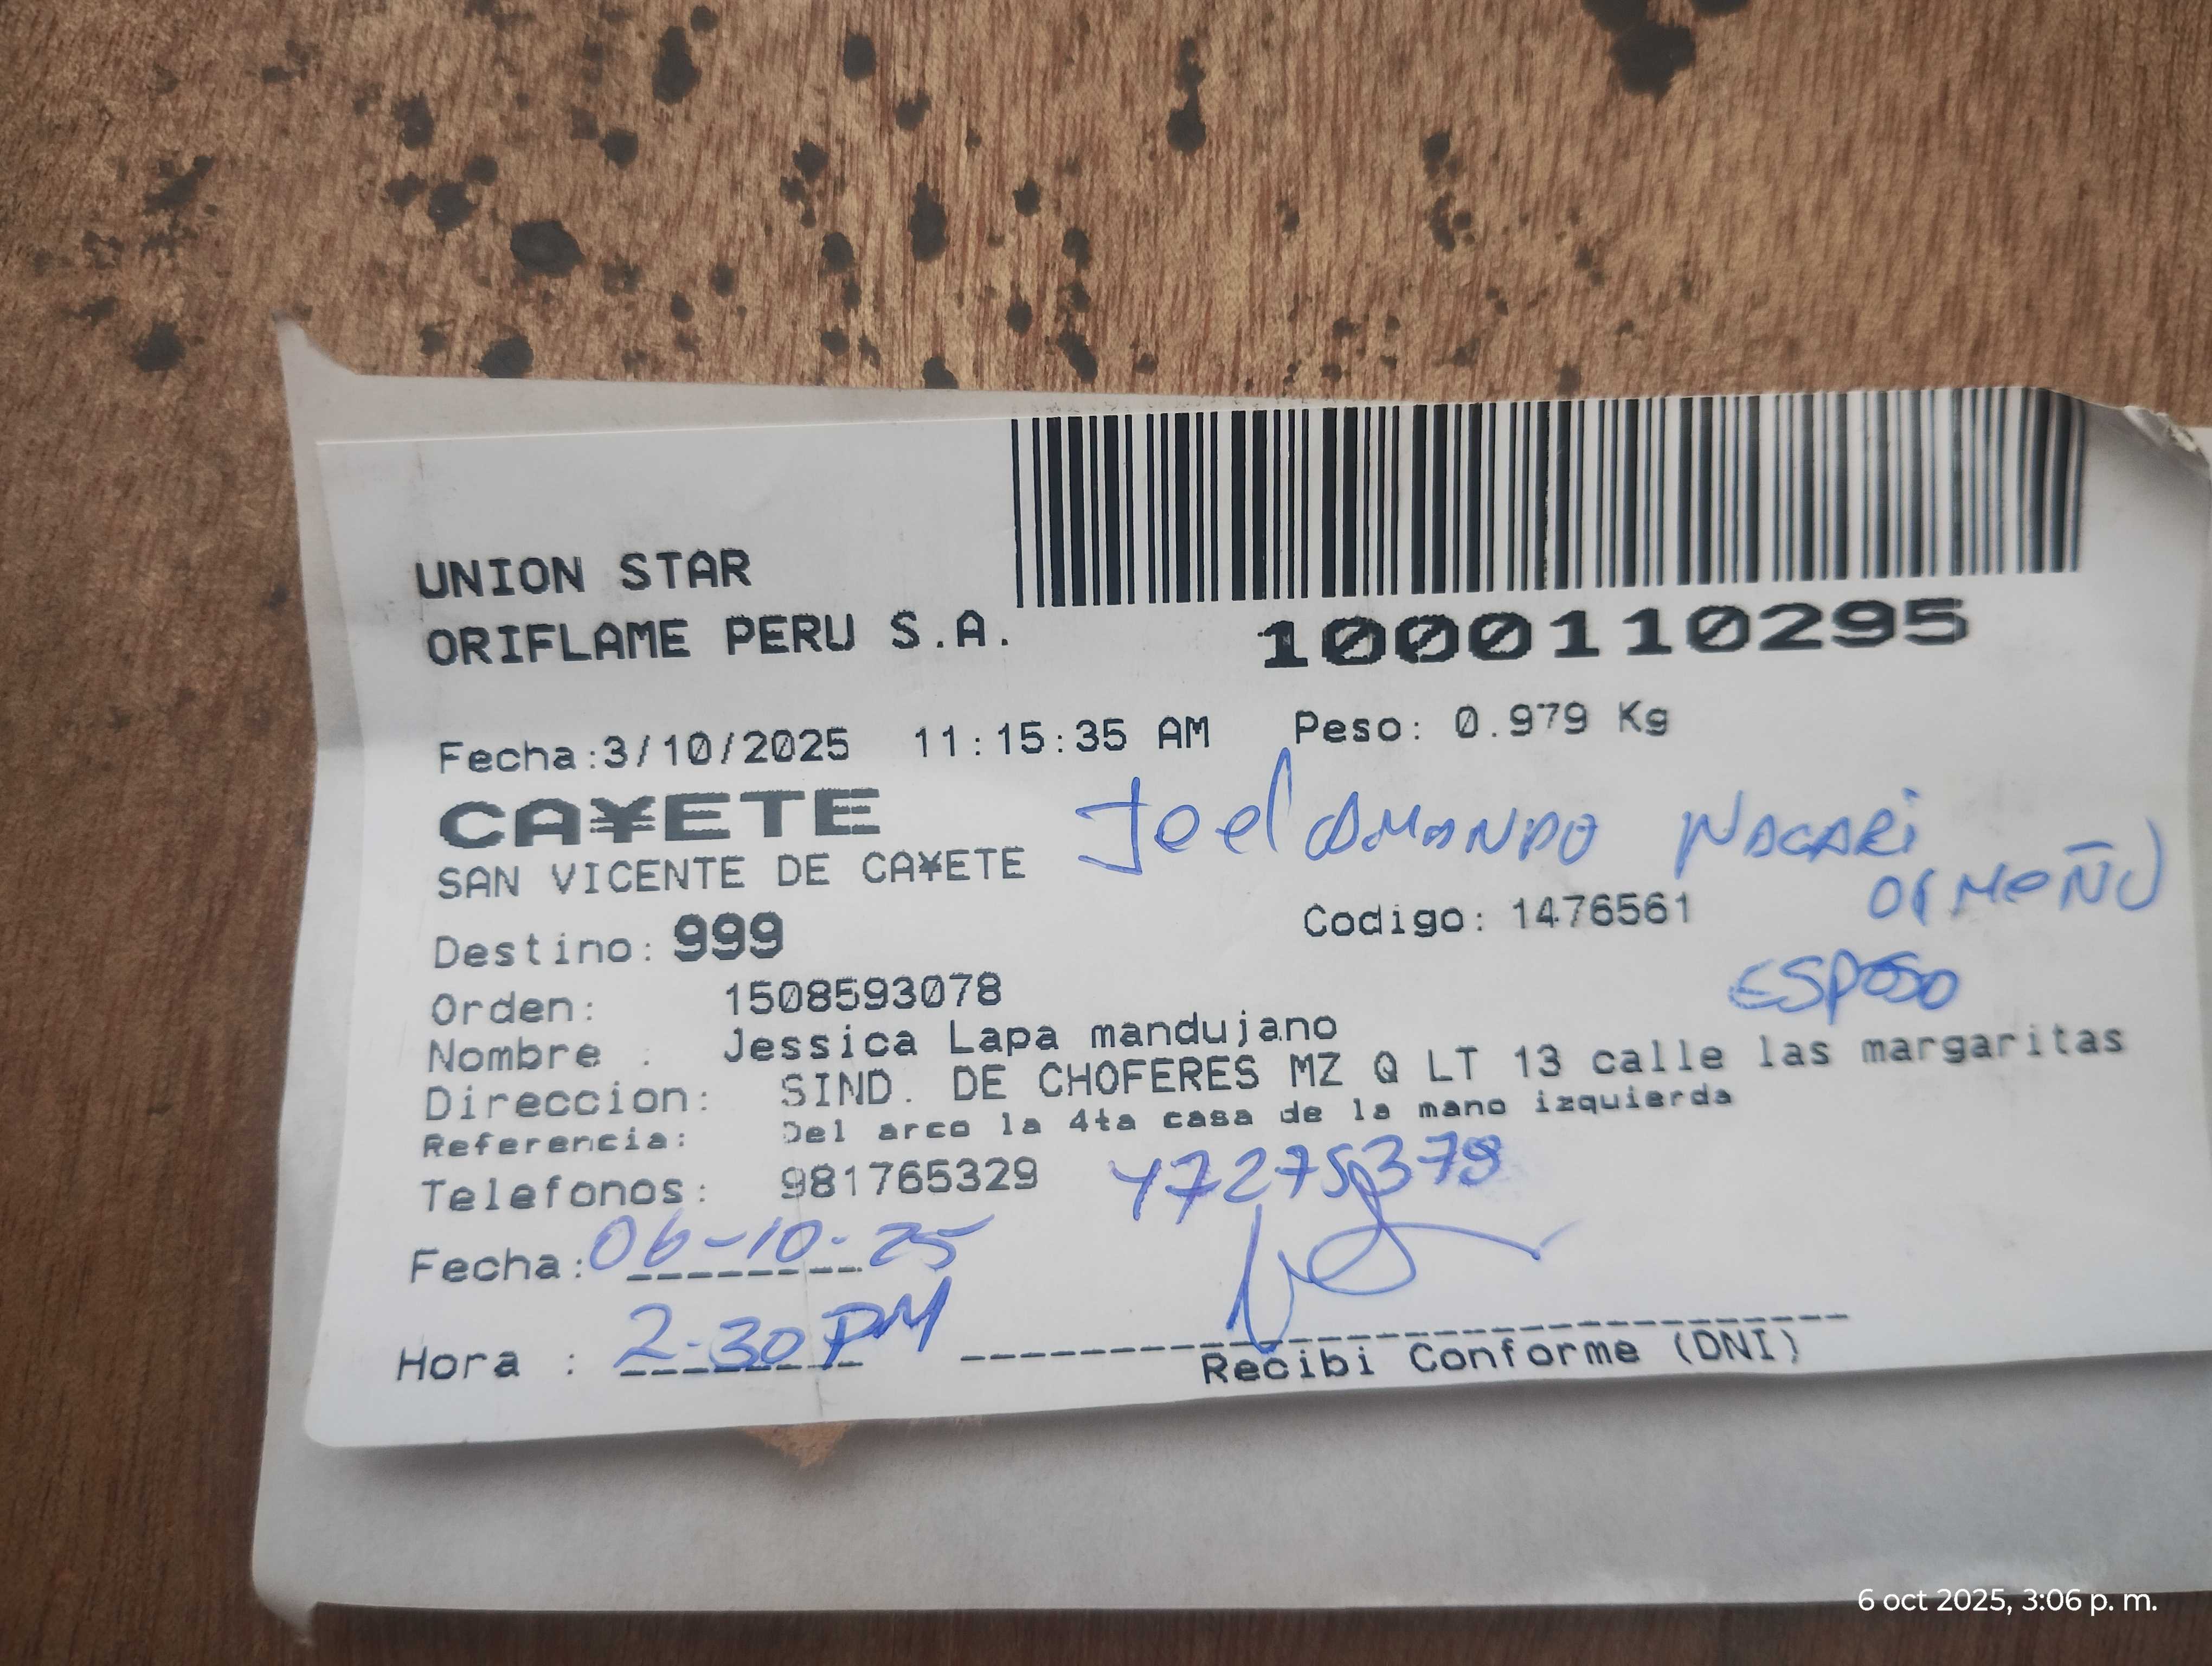 UNION STAR
ORIFLAME PERU S.A.
1000110295
Fecha:3/10/2025 11:15:35 AM Peso: 0.979 Kg
CA¥ETE
Joel
SAN VICENTE DE CA¥ETE
ORMEÑO
Destino: 999 Codigo: 1476561
ESPOSO
Orden: 1508593078
Nombre : Jessica Lapa mandujano
Direccion: SIND. DE CHOFERES MZ Q LT 13 calle las margaritas
Referencia: Del arco la 4ta casa de la mano izquierda
Telefonos: 981765329
Fecha: 06-10-25
Hora : 2-30 PM
Recibi Conforme (DNI)
6 oct 2025, 3:06 p. m.